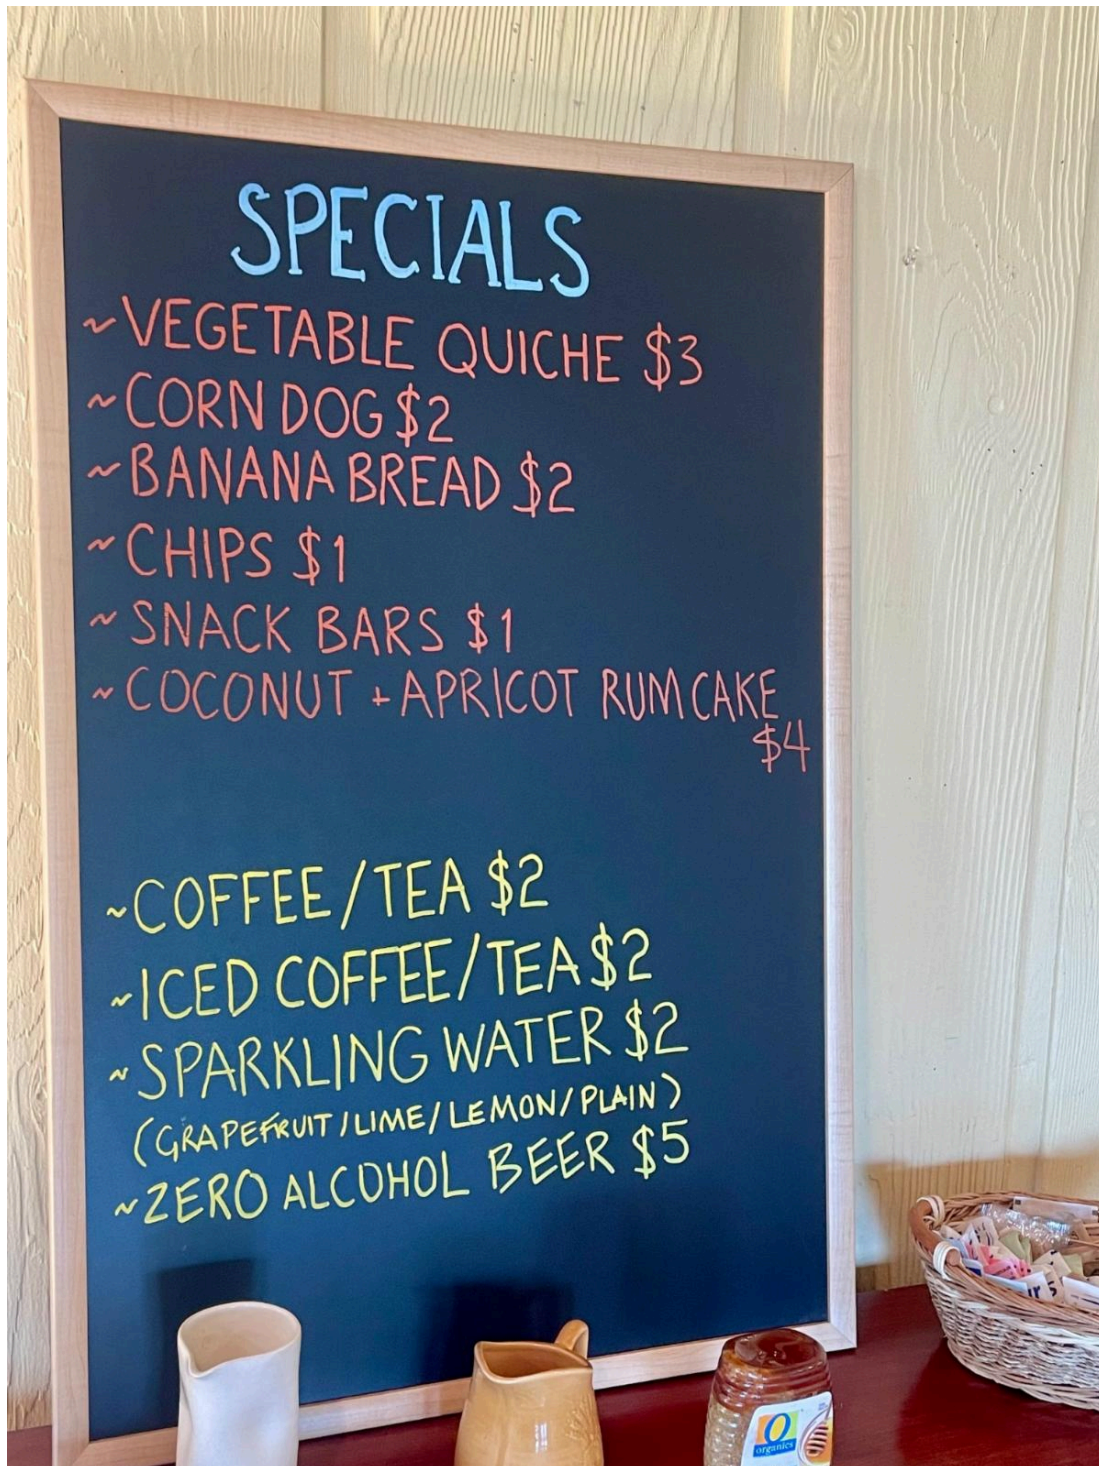 SPECIALS
~VEGETABLE QUICHE $3
~CORN DOG $2
~BANANA BREAD $2
~CHIPS $1
~SNACK BARS $1
~COCONUT + APRICOT RUM CAKE
$4
~COFFEE/TEA $2
~ICED COFFEE/TEA $2
~SPARKLING WATER $2
(GRAPEFRUIT/LIME/LEMON/PLAIN)
~ZERO ALCOHOL BEER $5
O
organics